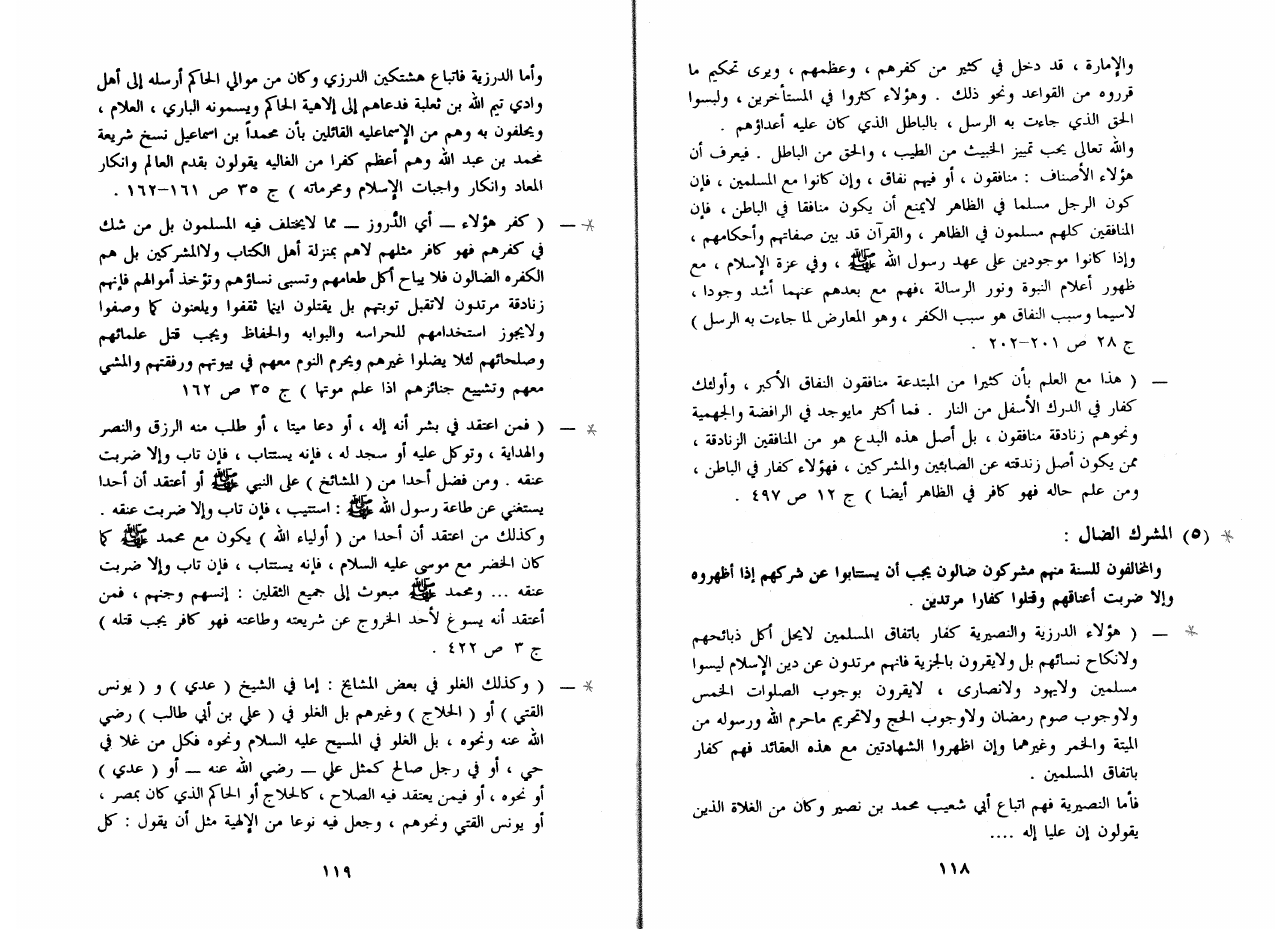 والإمارة ، قد دخل في كثير من كفرهم ، وعظمهم ، ويرى تحكيم ما
قرروه من القواعد ونحو ذلك . وهؤلاء كثروا في المستأخرين ، ولبسوا
الحق الذي جاءت به الرسل ، بالباطل الذي كان عليه أعداؤهم .
والله تعالى يحب تمييز الخبيث من الطيب ، والحق من الباطل . فيعرف أن
هؤلاء الأصناف : منافقون ، أو فيهم نفاق ، وإن كانوا مع المسلمين ، فإن
كون الرجل مسلما في الظاهر لايمنع أن يكون منافقا في الباطن ، فإن
المنافقين كلهم مسلمون في الظاهر ، والقرآن قد بين صفاتهم وأحكامهم ،
وإذا كانوا موجودين على عهد رسول الله ﷺ ، وفي عزة الإسلام ، مع
ظهور أعلام النبوة ونور الرسالة ،فهم مع بعدهم عنهما أشد وجودا ،
لاسيما وسبب النفاق هو سبب الكفر ، وهو المعارض لما جاءت به الرسل )
ج ٢٨ ص ٢٠١–٢٠٢ .
— ( هذا مع العلم بأن كثيرا من المبتدعة منافقون النفاق الأكبر ، وأولئك
كفار في الدرك الأسفل من النار . فما أكثر مايوجد في الرافضة والجهمية
ونحوهم زنادقة منافقون ، بل أصل هذه البدع هو من المنافقين الزنادقة ،
ممن يكون أصل زندقته عن الصابئين والمشركين ، فهؤلاء كفار في الباطن ،
ومن علم حاله فهو كافر في الظاهر أيضا ) ج ١٢ ص ٤٩٧ .
* (٥) المشرك الضال :
والمخالفون للسنة منهم مشركون ضالون يجب أن يستتابوا عن شركهم إذا أظهروه
وإلا ضربت أعناقهم وقتلوا كفارا مرتدين .
* — ( هؤلاء الدرزية والنصيرية كفار باتفاق المسلمين لايحل أكل ذبائحهم
ولانكاح نسائهم بل ولايقرون بالجزية فانهم مرتدون عن دين الإسلام ليسوا
مسلمين ولايهود ولانصارى ، لايقرون بوجوب الصلوات الخمس
ولاوجوب صوم رمضان ولاوجوب الحج ولاتحريم ماحرم الله ورسوله من
الميتة والخمر وغيرهما وإن اظهروا الشهادتين مع هذه العقائد فهم كفار
باتفاق المسلمين .
فأما النصيرية فهم اتباع أبي شعيب محمد بن نصير وكان من الغلاة الذين
يقولون إن عليا إله ....
١١٨
وأما الدرزية فاتباع هشتكين الدرزي وكان من موالي الحاكم أرسله إلى أهل
وادي تيم الله بن ثعلبة فدعاهم إلى إلاهية الحاكم ويسمونه الباري ، العلام ،
ويحلفون به وهم من الإسماعليه القائلين بأن محمداً بن اسماعيل نسخ شريعة
محمد بن عبد الله وهم أعظم كفرا من الغاليه يقولون بقدم العالم وانكار
المعاد وانكار واجبات الإسلام ومحرماته ) ج ٣٥ ص ١٦١–١٦٢ .
* — ( كفر هؤلاء — أي الدُروز — مما لايختلف فيه المسلمون بل من شك
في كفرهم فهو كافر مثلهم لاهم بمنزلة أهل الكتاب ولاالمشركين بل هم
الكفره الضالون فلا يباح أكل طعامهم وتسبى نساؤهم وتؤخذ أموالهم فإنهم
زنادقة مرتدون لاتقبل توبتهم بل يقتلون اينما ثقفوا ويلعنون كما وصفوا
ولايجوز استخدامهم للحراسه والبوابه والحفاظ ويجب قتل علمائهم
وصلحائهم لئلا يضلوا غيرهم ويحرم النوم معهم في بيوتهم ورفقتهم والمشي
معهم وتشييع جنائزهم اذا علم موتها ) ج ٣٥ ص ١٦٢
* — ( فمن اعتقد في بشر أنه إله ، أو دعا ميتا ، أو طلب منه الرزق والنصر
والهداية ، وتوكل عليه أو سجد له ، فإنه يستتاب ، فإن تاب وإلا ضربت
عنقه . ومن فضل أحدا من ( المشائخ ) على النبي ﷺ أو أعتقد أن أحدا
يستغني عن طاعة رسول الله ﷺ : استتيب ، فإن تاب وإلا ضربت عنقه .
وكذلك من اعتقد أن أحدا من ( أولياء الله ) يكون مع محمد ﷺ كما
كان الخضر مع موسى عليه السلام ، فإنه يستتاب ، فإن تاب وإلا ضربت
عنقه ... ومحمد ﷺ مبعوث إلى جميع الثقلين : إنسهم وجنهم ، فمن
أعتقد أنه يسوغ لأحد الخروج عن شريعته وطاعته فهو كافر يجب قتله )
ج ٣ ص ٤٢٢ .
* — ( وكذلك الغلو في بعض المشايخ : إما في الشيخ ( عدي ) و ( يونس
القتي ) أو ( الحلاج ) وغيرهم بل الغلو في ( علي بن أبي طالب ) رضي
الله عنه ونحوه ، بل الغلو في المسيح عليه السلام ونحوه فكل من غلا في
حي ، أو في رجل صالح كمثل علي — رضي الله عنه — أو ( عدي )
أو نحوه ، أو فيمن يعتقد فيه الصلاح ، كالحلاج أو الحاكم الذي كان بمصر ،
أو يونس القتي ونحوهم ، وجعل فيه نوعا من الإلهية مثل أن يقول : كل
١١٩